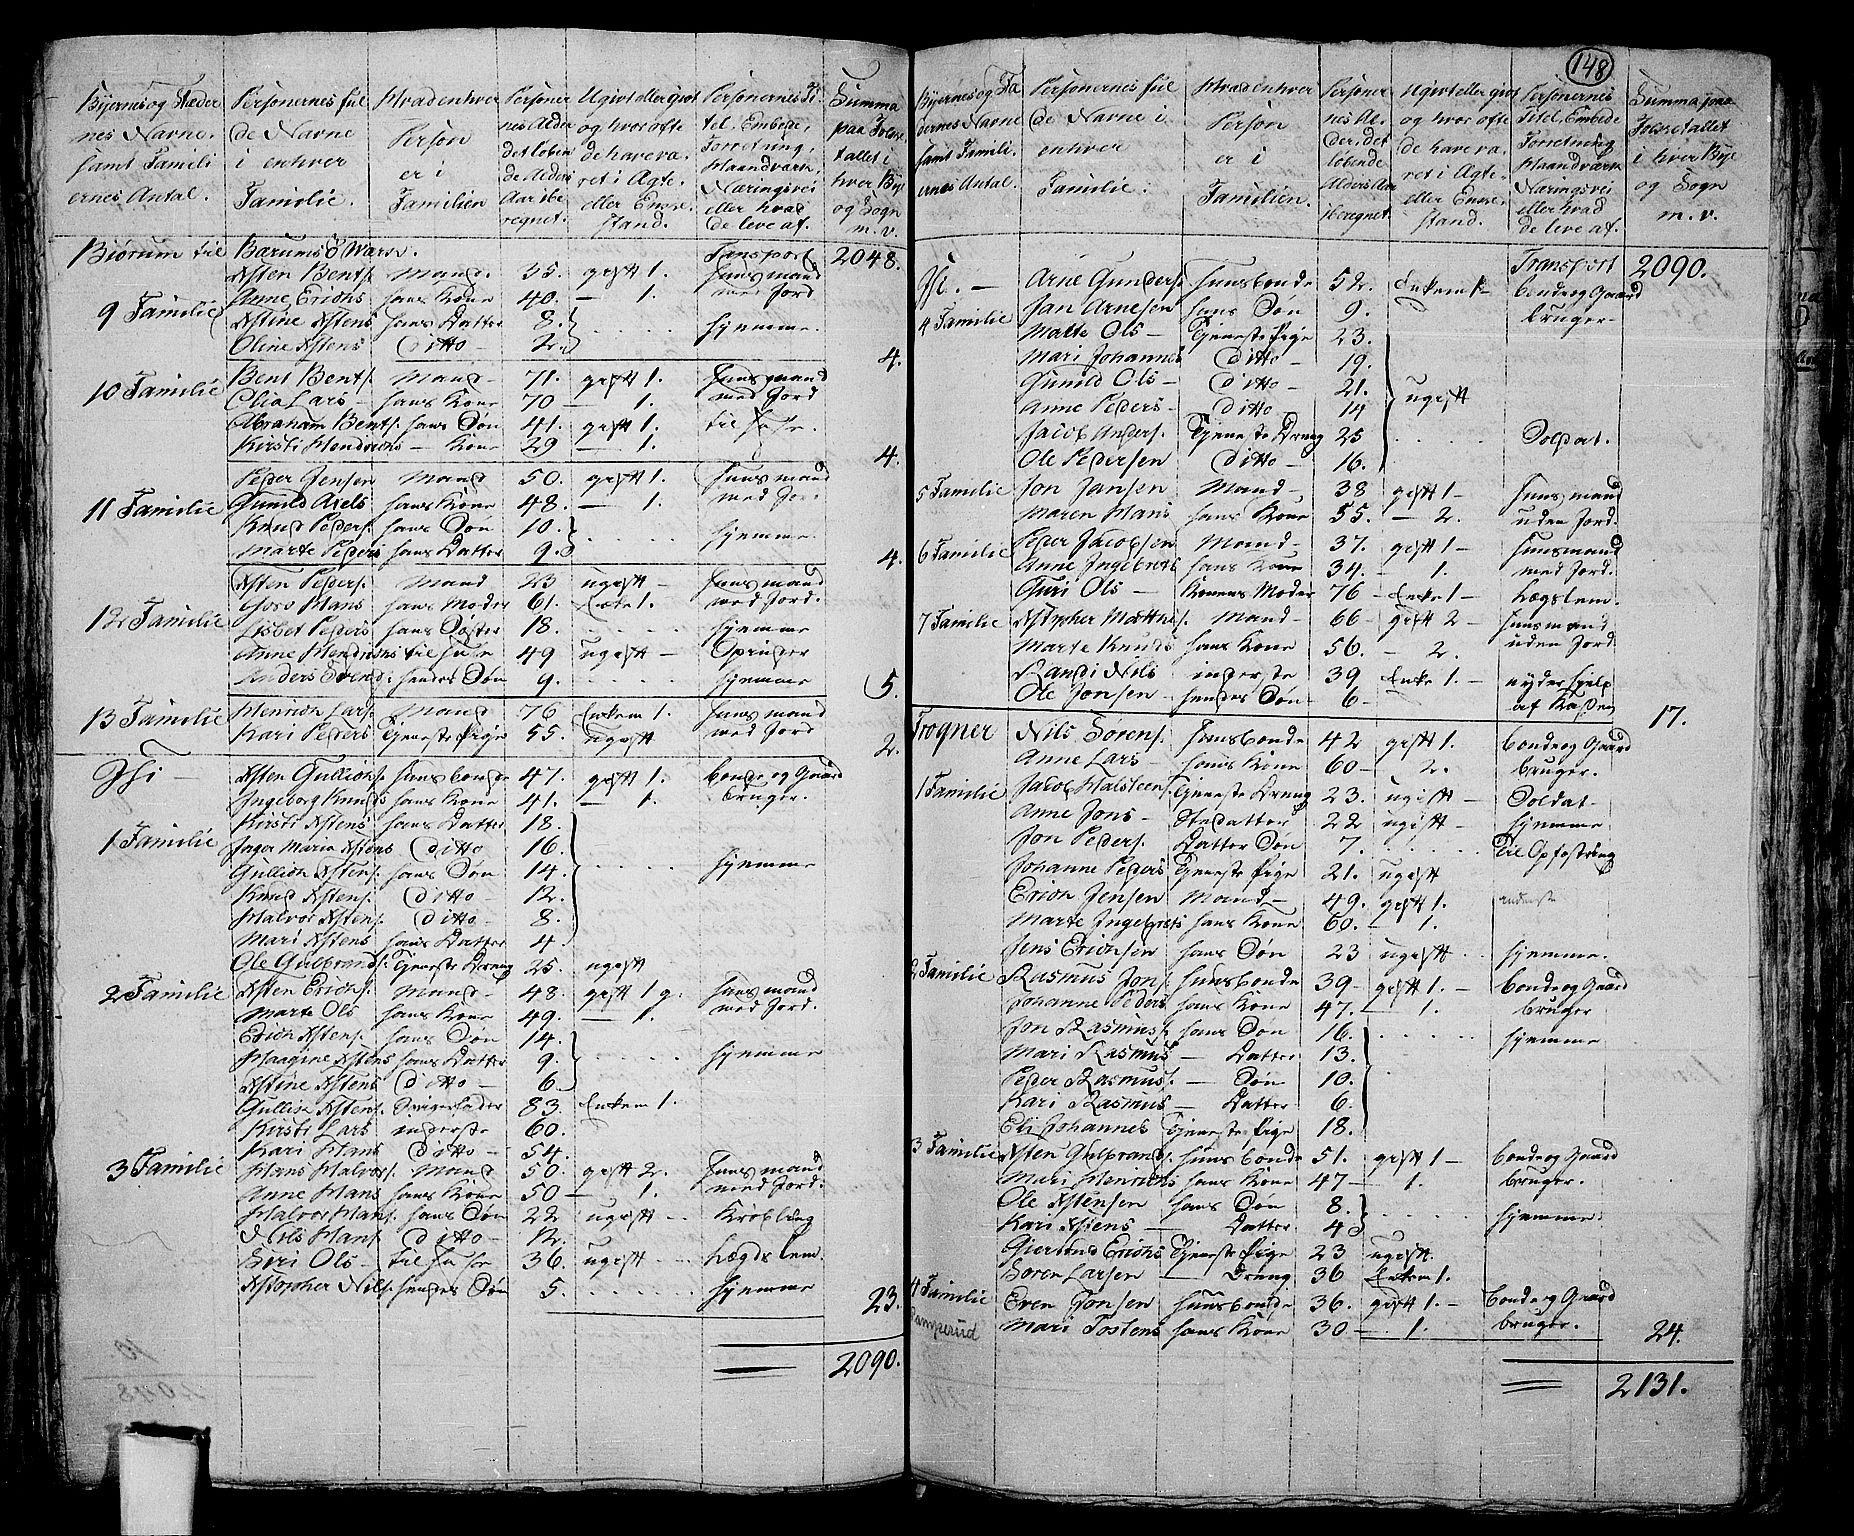 Byernes og Stæder
nes Navne.
samt Famili
ernes Antal.
Personernes ful
de Navne
i enhver
Familie.
Hvad enhver
Person
er i
Familien
Personer
nes Alder
det løben
de Alders
Aar ibe
regnet.
Ugivt eller givt
og hvor ofte
de have va
ret i Ægte
eller Enke
stand.
Personernes Ti
tel, Embede,
Forretning,
Haandværk,
Næringsvei
eller hvad
de leve af.
Summa
paa Folke
tallet i
hver Bye
og Sogn
m. v.
Biørum til Barums Wærk. Transport 2048.
Asten Bents. Mand 35. gift 1. Huusmand
9 Familie Anne Erichs hans Kone 40. — 1. med Jord
Astine Astens hans Datter 8. hjemme.
Oline Astens Ditto 2. 4.
10 Familie Bent Bents. Mand 71. gift 1. Huusmand
Olia Lars hans Kone 70 — 1. med Jord
Abraham Bents. hans Søn 41. gift 1. til huse.
Kirsti Hendrichs — Kone 29 — 1. 4.
Peder Jensen Mand 50. gift 1. Huusmand
11 Familie Gunild Axels hans Kone 48. — 1. med Jord.
Knud Peders. hans Søn 10. hjemme.
Marte Peders hans Datter 9. 4.
Asten Peders. Mand 23 ugift Huusmand
12 Familie Goro Hans hans Moder 61. Enke 1. med Jord.
Lisbet Peders hans Søster 18. hjemme
Anne Hendrichs til huse 49 ugift
Anders Evend: hendes Søn 9. hjemme 5.
13 Familie Henrich Lars. Mand 76 Enkem 1. Huusmand
Kari Peders Tjeneste Pige 55. ugift med Jord 2.
Jhi — Asten Gullichs. Huusbonde 47. gift 1. bonde og Gaard
Ingeborg Knuds hans Kone 41. — 1. bruger.
1 Familie Kirsti Astens hans Datter 18.
Inger Marie Astens Ditto 16.
Gullich Astens. hans Søn 14. hjemme
Knud Astens. Ditto 12.
Halvor Astens. Ditto 8.
Mari Astens hans Datter 4.
Ole Gulbrands. Tjeneste Dreng 25. ugift
2 Familie Asten Erichs. Mand 48. gift 1 g. Huusmand
Marte Ols hans Kone 49. — 1. med Jord.
Erich Astens. hans Søn 14.
Maagine Astens hans Datter 9. hjemme
Astine Astens Ditto 6.
Gullich Astens. Svigerfader 83. Enkem 1.
Kirsti Lars inderste 60.
Kari Hans Ditto 54.
3 Familie Hans Halvors. Mand 50. gift 2. Huusmand
Anne Hans hans Kone 50 — 1. med Jord.
Halvor Hans. hans Søn 22 ugift Krøbling
Nils Hans. Ditto 12.
Siri Ols til huse 36. ugift Lægdslem.
Kristopher Nils. hendes Søn 5. hjemme 23.
2090.
148
Byernes og Stæ
dernes Navne
samt Famili
ernes Antal.
Personernes ful
de Navne i
enhver
Familie.
Hvad enhver
Person
er i
Familien.
Personer
nes Al
der, det
løbende
Alders Aar
iberegnet.
Ugivt eller givt
og hvor ofte
de have va
ret i Ægte
eller Enke
stand.
Personernes
Titel, Embede
Forretning
Haandværk
Næringsvei
eller hvad
de leve af.
Summa paa
Folketallet
i hver Bye
og Sogn
m. v.
Transport 2090.
Jhi. — Arne Gunders. Huusbonde 52. Enkem 1 bonde og Gaard
Jan Arnesen hans Søn 9. bruger
4 Familie Malte Ols Tjeneste Pige 23.
Mari Johannes Ditto 19.
Gunild Ols Ditto 21. ugift
Anne Peders Ditto 14
Jacob Anders. Tjeneste Dreng 25 Soldat.
Ole Pedersen Ditto 16.
5 Familie Jon Jansen Mand 38 gift 1 Huusmand
Maren Hans hans Kone 55. — 2. uden Jord.
6 Familie Peder Jacobsen Mand 37. gift 1 Huusmand
Anne Ingebrets hans Kone 34. — 1. med Jord.
Guri Ols Konens Moder 76 Enke 1 Lægslem.
7 Familie Kristopher Matthes. Mand 66 gift 2 Huusmand
Marte Knuds hans Kone 56. — 2. uden Jord.
Randi Nils inderste 39 Enke 1. nyder hielp
Ole Jonsen hendes Søn 6 af Kassen 17.
Frogner Nils Sørens. Huusbonde 42 gift 1. bonde og Gaard
Anne Lars hans Kone 60 — 2. bruger.
1 Familie Jacob Halsteens. Tjeneste Dreng 23. ugift Soldat
Anne Jons Stedatter 22 ugift hjemme
Jon Peders. Datter Søn 7. Til Opfostring
Johanne Peders Tjeneste Pige 21. ugift
Erich Jensen Mand 49. gift 1.
Marte Ingebrets hans Kone 60. — 1.
Jens Erichsen hans Søn 23 ugift hjemme.
2 Familie Rasmus Jons. Huusbonde 39 gift 1. bonde og Gaard
Johanne Peders hans Kone 47. — 1. bruger
Jon Rasmus. hans Søn 16. hjemme
Mari Rasmus — Datter 13.
Peder Rasmus. — Søn 10.
Kari Rasmus — Datter 6.
Eli Johannes Tjeneste Pige 18.
3 Familie Asten Gulbrands. Huusbonde 51. gift 1 bonde og Gaard
Mari Henrichs hans Kone 47 — 1. bruger.
Ole Astensen hans Søn 8. hjemme.
Kari Astens — Datter 4
Gjertrud Erichs Tjeneste Pige 23 ugift
Søren Larsen — Dreng 36 Enkem 1.
4 Familie Even Jonsen Huusbonde 36. gift 1. bonde og Gaard
Mari Tostens hans Kone 30 — 1. bruger. 24.
2131.